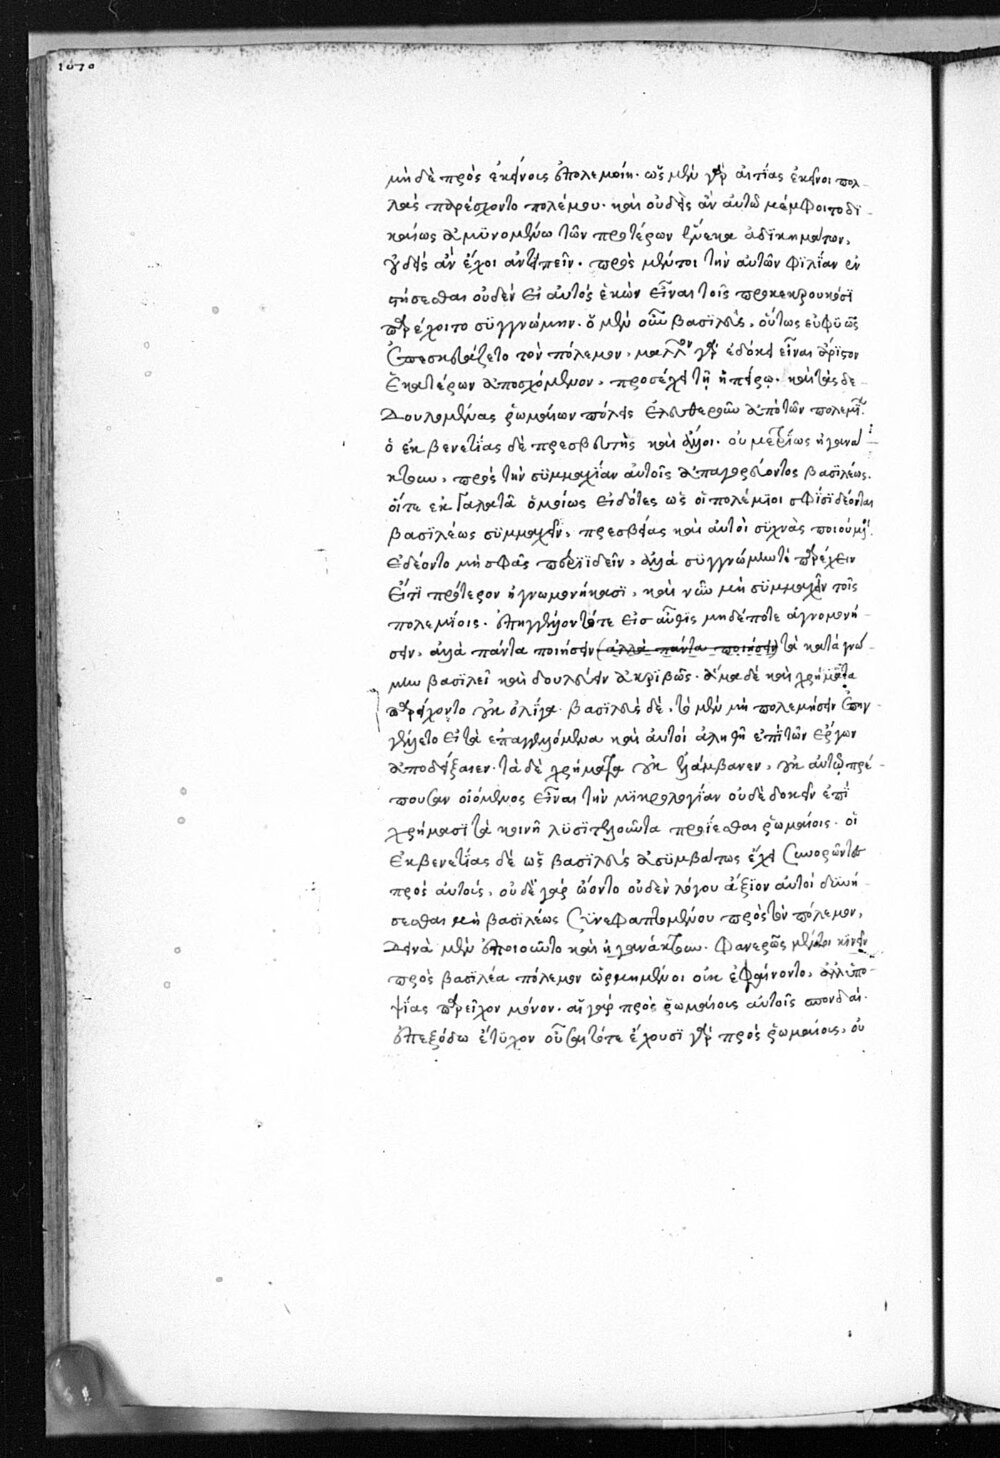 1070
μὴ δὲ πρὸς ἐκείνοις ἐπολεμοίη. ὡς μὲν γὰρ αἰτίας ἐκεῖνοι πολ-
λὰς παρέσχοντο πολέμου. καὶ οὐδεὶς ἂν αὐτῷ μέμφοιτο δϊ-
καίως ἀμϋνομένω τῶν προτέρων ἕνεκα ἀδϊκημάτων,
οὐδεὶς ἂν ἔχοι ἀντειπεῖν. πρὸς μέντοι τὴν αὐτῶν φϊλίαν ἐν
στήσεσθαι οὐδὲν εἰ αὐτὸς ἑκὼν εἶναι τοῖς προκεκρουκόσϊ
παρέχοιτο σϋγγνώμην. ὁ μὲν οὖν βασϊλεὺς, οὕτως εὐφϋῶς
ἐπεσκευάζετο τὸν πόλεμον, μᾶλλον γὰρ ἐδόκει εἶναι ἄρϊστον
ἑκατέρων ἀποσχόμενον, προσέχειν τῇ ἠπείρῳ. καὶ τὰς δε-
δουλωμένας ῥωμαίων πόλεις ἐλευθεροῦν ἀπὸ τῶν πολεμίων.
ὁ ἐκ βενετΐας δὲ πρεσβευτὴς καὶ ἄλλοι. οὐ μετρΐως ἠγανά-
κτουν, πρὸς τὴν σϋμμαχΐαν αὐτοῖς ἀπαγορεύοντος βασϊλέως.
οἵτε ἐκ Γαλατᾶ ὁμοίως εἰδότες ὡς οἱ πολέμϊοι σφΐσϊ δέονται
βασϊλέως σϋμμαχεῖν, πρεσβείας καὶ αὐτοὶ σϋχνὰς ποιούμενοι.
ἐδέοντο μὴ σφᾶς περϊϊδεῖν, ἀλλὰ σϋγγνώμην τὲ παρέχειν
εἴτϊ πρότερον ἠγνωμονήκασϊ, καὶ νῦν μὴ σϋμμαχεῖν τοῖς
πολεμΐοις. ἐπηγγέλλοντό τε εἰσ αὖθϊς μηδέποτε ἀγνομονή-
σειν, ἀλλὰ πάντα ποιήσειν (ἀλλὰ πάντα ποιήσειν) τὰ κατὰ γνώ-
μην βασϊλεῖ καὶ δουλεύειν ἀκρϊβῶς. ἅμα δὲ καὶ χρήματα
παρείχοντο οὐκ ὀλΐγα. βασϊλεὺς δὲ, τὸ μὲν μὴ πολεμήσειν ἐπηγ-
γέλλετο εἰ τὰ ἐπαγγελλόμενα καὶ αὐτοὶ ἀληθῆ ἐπὶ τῶν ἔργων
ἀποδείξαιεν. τὰ δὲ χρήματα οὐκ ἐλάμβανεν, οὐκ αὐτῷ πρέ-
πουσαν οἰόμενος εἶναι τὴν μϊκρολογΐαν οὐδὲ δοκεῖν ἐπὶ
χρήμασϊ τὰ κοινῇ λϋσϊτελοῦντα προΐεσθαι ῥωμαίοις. οἱ
ἐκ βενετΐας δὲ ὡς βασϊλεὺς ἀσϋμβάτως ἔχει συνορῶντες
πρὸς αὐτοὺς, οὐδὲ γὰρ ᾤοντο οὐδὲν λόγου ἄξϊον αὐτοὶ δϋνή-
σεσθαι μὴ βασϊλέως σϋνεφαπτομένου πρὸς τὸν πόλεμον,
δεινὰ μὲν ἐποιοῦντο καὶ ἠγανάκτουν. φανερῶς μέντοι κϊνεῖν
πρὸς βασϊλέα πόλεμον ὡρμημένοι οὐκ ἐφαίνοντο, ἀλλ᾽ ὑπο-
ψΐας παρεῖχον μόνον. αἱ γὰρ πρὸς ῥωμαίοις αὐτοῖς σπονδαὶ.
ἐπ᾽ ἐξόδω ἔτϋχον οὖσαι τότε ἔχουσϊ γὰρ πρὸς ῥωμαίοις, οὐ